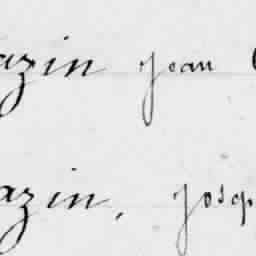 azin Jean
azin, Josep